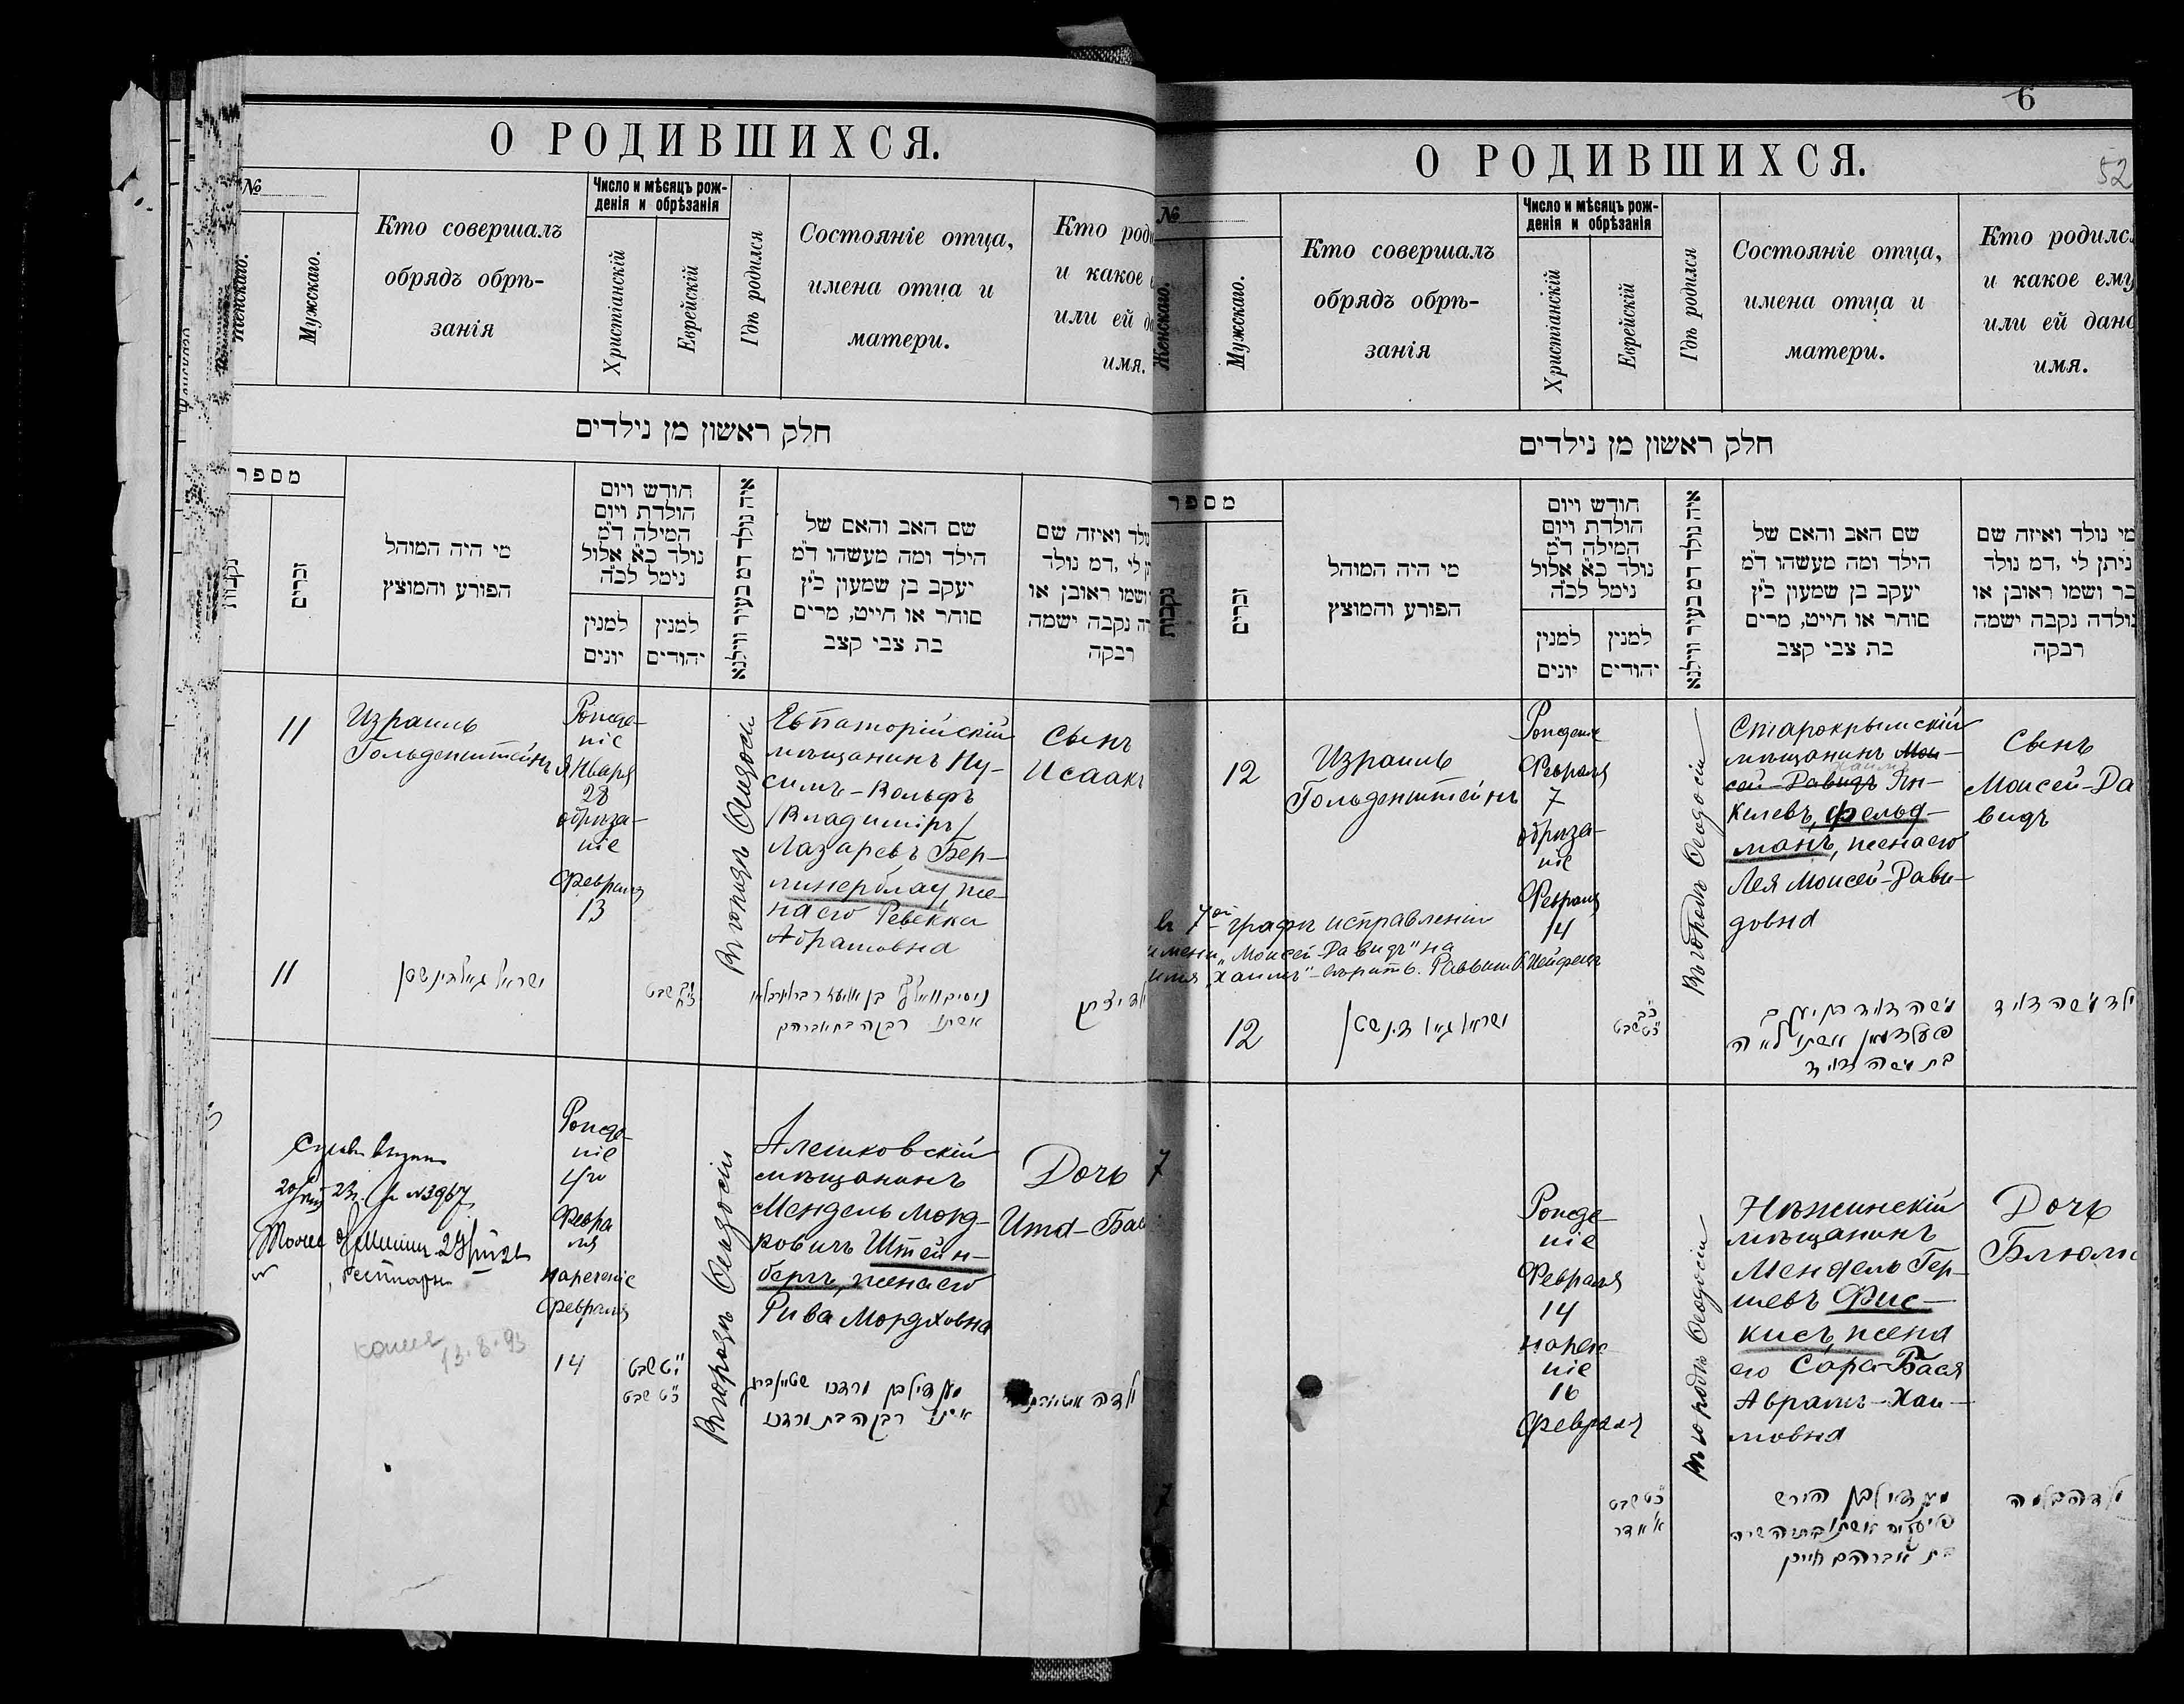 О РОДИВШИХСЯ.
№
Женскаго.
Мужскаго.
Кто совершалъ
обрядъ обрѣ-
занія
Число и мѣсяцъ рож-
денія и обрѣзанія
Христіанскій
Еврейскій
Гдѣ родился
Состояніе отца,
имена отца и
матери.
Кто роди
и какое
или ей
имя.
חלק ראשון מן נילדים
מספר
נקבות
זכרים
מי היה המוהל
הפורע והמוצץ
חודש ויום
הולדת ויום
המילה ד״מ
נולד כ״א אלול
נימל לכ״ה
למנין
יונים
למנין
יהודים
איה נולד דמ בעיר ווילנא
שם האב והאם של
הילד ומה מעשהו ד״מ
יעקב בן שמעון כ״ץ
סוחר או חייט, מרים
בת צבי קצב
ולד ואיזה שם
לי, דמ נולד
ושמו ראובן או
נקבה ישמה
רבקה
11
Израиль
Гольденштейнъ
Рожде-
ніе
Января
28
обрѣза-
ніе
Февраля
13
Въ городѣ Ѳеодосіи
Евпаторійскій
мѣщанинъ Ну-
симъ-Вольфъ
/Владиміръ/
Лазаревъ Бер-
линерблау, же-
на его Ревекка
Абрамовна
Сынъ
Исаакъ
11
ישראל גאלדינשטיין
שבט
אשתו רבקה בת אברהם
ילד יצחק
20 23 г. № 3967
копия 13.8.93
Рожде-
ніе
4го
Февра
ля
нареченіе
Февраля
14
י״ט שבט
כ״ט שבט
Въ городѣ Ѳеодосіи
Алешковскій
мѣщанинъ
Мендель Морд-
ковичъ Штейн-
бергъ, жена его
Рива Мордховна
מענדיל בן מרדכי שטיינבערג
אשתו רבקה בת מרדכי
Дочь
Ита-Бас
ילדה
6
52
О РОДИВШИХСЯ.
№
Женскаго.
Мужскаго.
Кто совершалъ
обрядъ обрѣ-
занія
Число и мѣсяцъ рож-
денія и обрѣзанія
Христіанскій
Еврейскій
Гдѣ родился
Состояніе отца,
имена отца и
матери.
Кто родилс
и какое ему
или ей дано
имя.
חלק ראשון מן נילדים
מספר
נקבות
זכרים
מי היה המוהל
הפורע והמוצץ
חודש ויום
הולדת ויום
המילה ד״מ
נולד כ״א אלול
נימל לכ״ה
למנין
יונים
למנין
יהודים
איה נולד דמ בעיר ווילנא
שם האב והאם של
הילד ומה מעשהו ד״מ
יעקב בן שמעון כ״ץ
סוחר או חייט, מרים
בת צבי קצב
מי נולד ואיזה שם
ניתן לי, דמ נולד
בר ושמו ראובן או
נולדה נקבה ישמה
רבקה
12
Израиль
Гольденштейнъ
Рожденіе
Февраля
7
обрѣза-
ніе
Февраля
14
Въ городѣ Ѳеодосіи
Старокрымскій
мѣщанинъ Мои-
Хаимъ
сей-Давидъ Ян-
келевъ, Фельд-
манъ, жена его
Лея Моисей-Дави-
довна
Сынъ
Моисей-Да
видъ
въ 7ой графѣ исправленіи
имени „Моисей-Давидъ" на
имя „Хаимъ" – вѣрить. Раввинъ
12
ישראל גאלדינשטיין
כ״ב
כ״ט שבט
משה דוד בן יעקב
פעלדמאן אשתו לאה
בת משה דוד
ילד משה דוד
7
Рожде-
ніе
Февраля
14
нарече-
ніе
16
Февраля
Въ городѣ Ѳеодосіи
Нѣжинскій
мѣщанинъ
Мендель Гер-
шевъ Фис-
кисъ, жена
его Сора-Бася
Абрамъ-Хаи-
мовна
Дочь
Блюма
7
כ״ט שבט
א׳ אדר
מענדיל בן הירש
בת אברהם חיים
ילדה בלומה